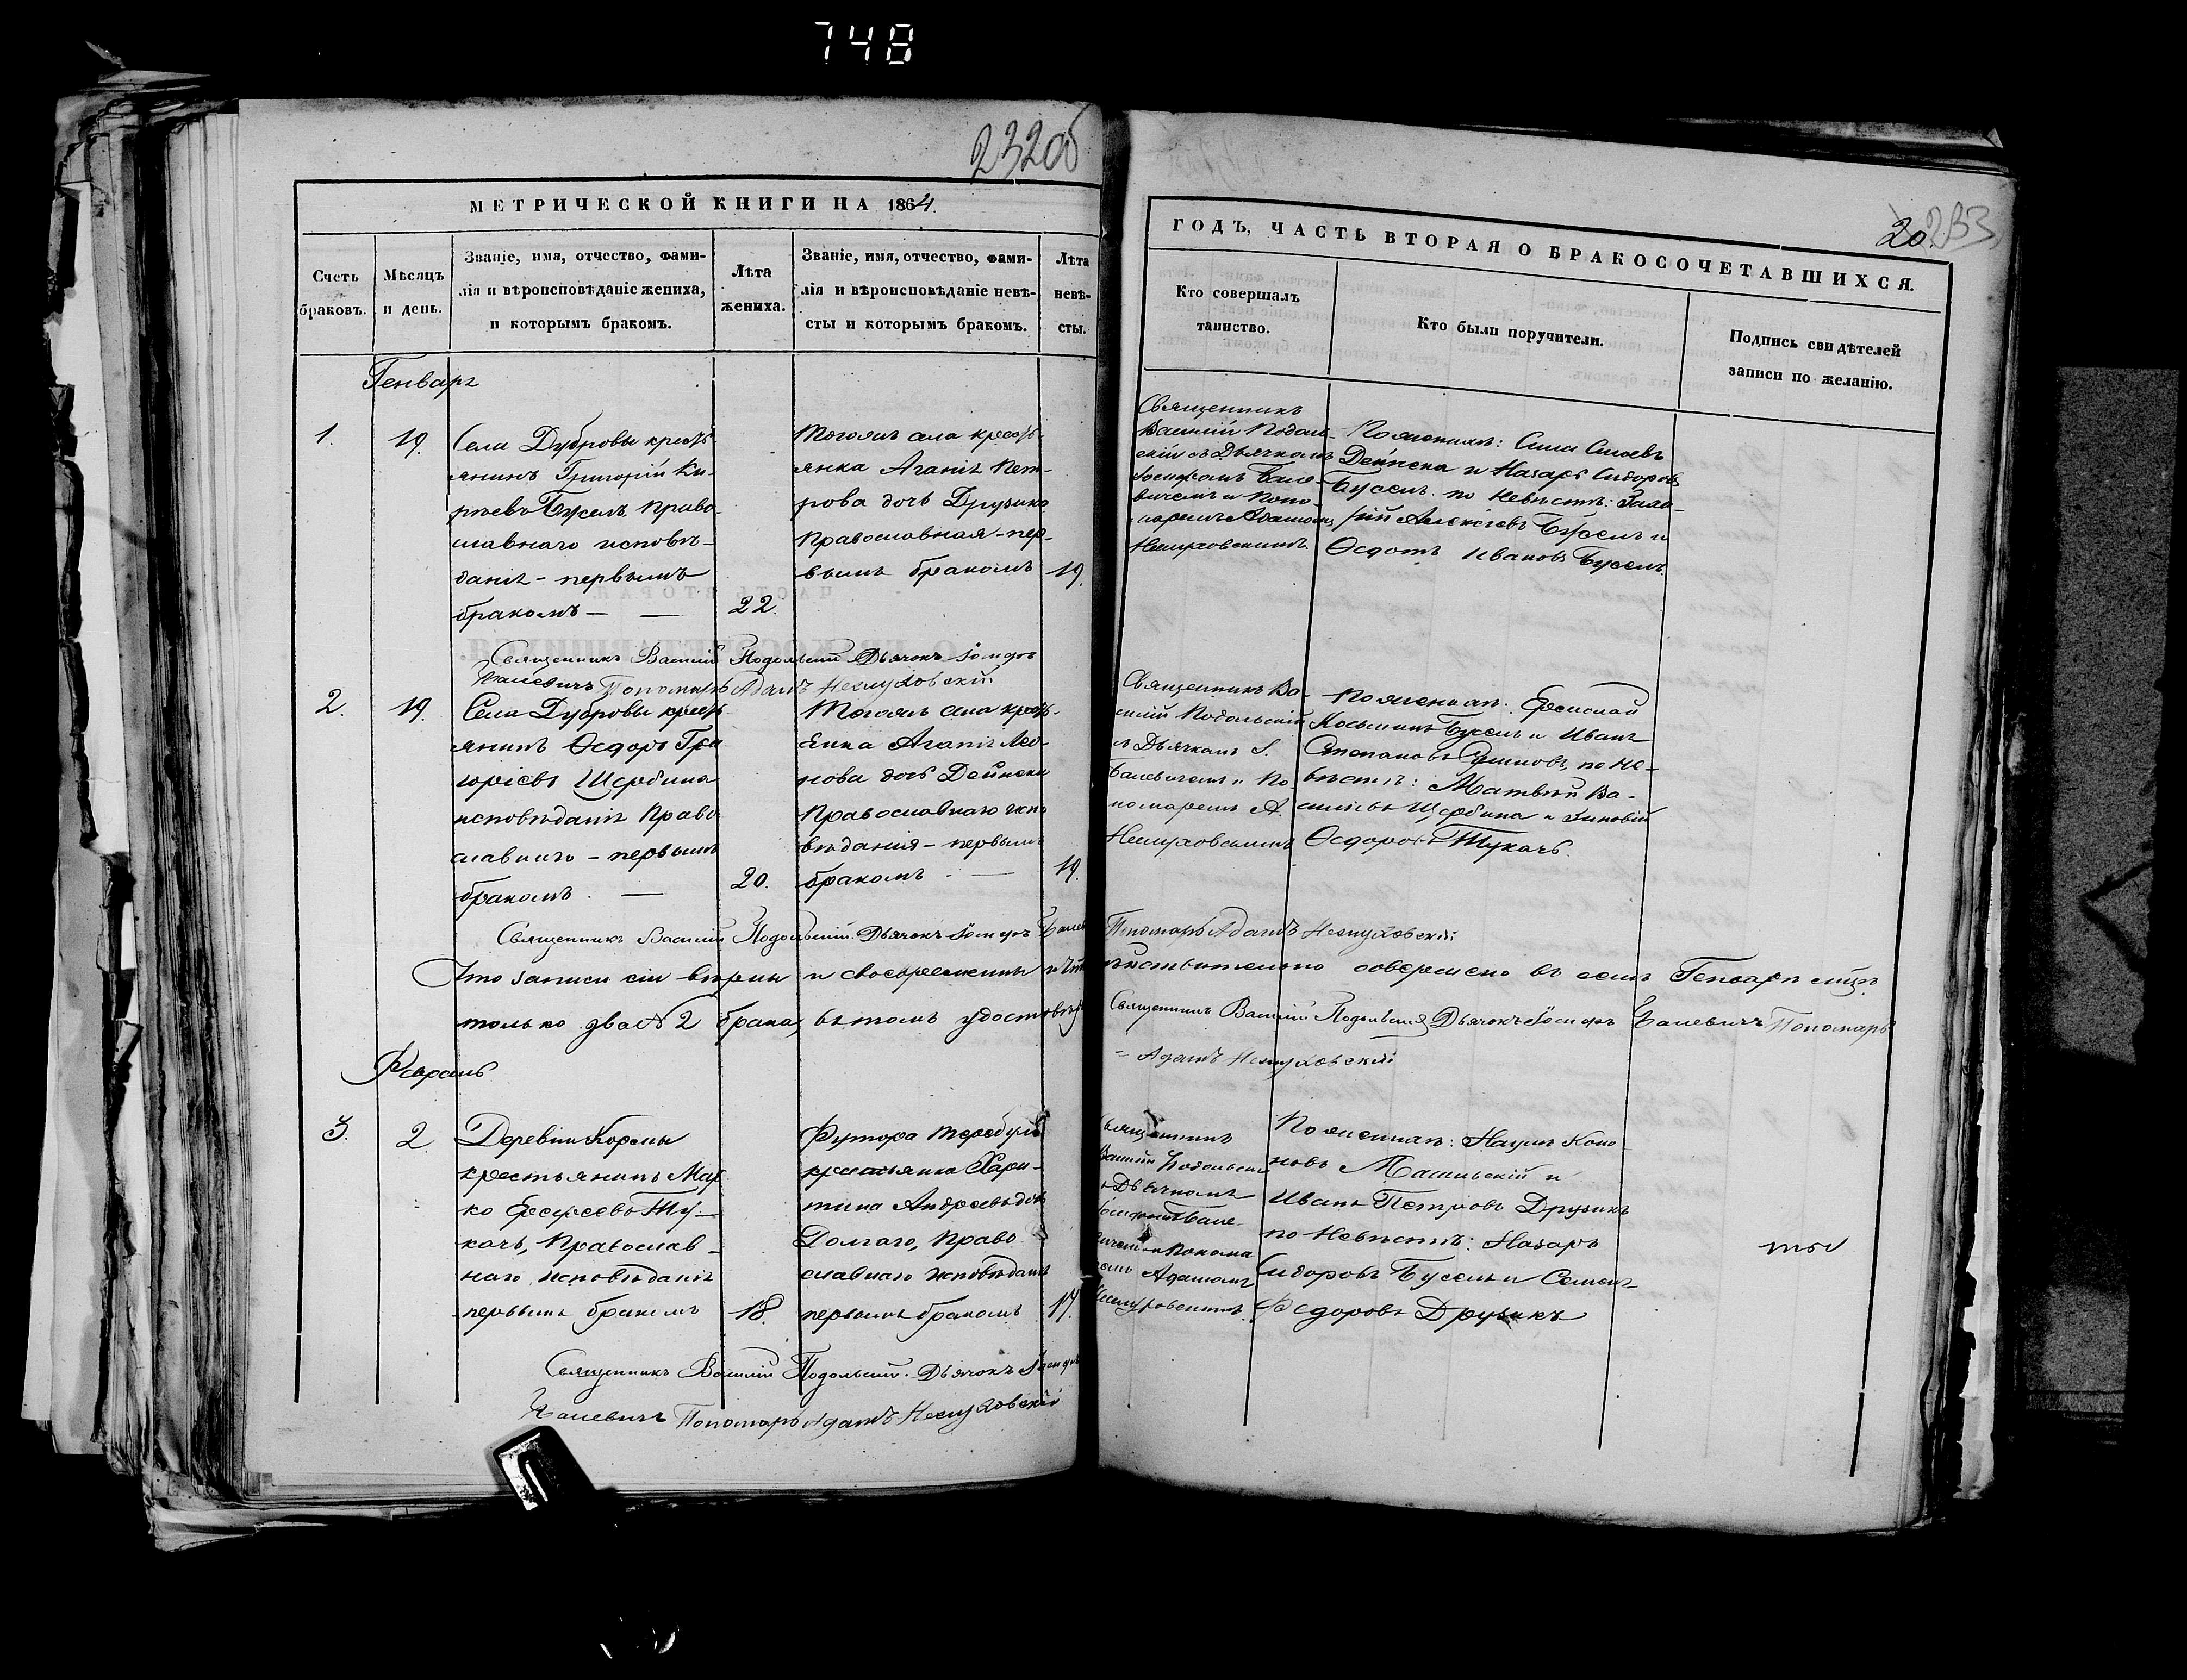 748
232об
МЕТРИЧЕСКОЙ КНИГИ НА 1864.
Счетъ браковъ.
Мѣсяцъ и день.
Званіе, имя, отчество, фами-
лія и вѣроисповѣданіе жениха,
и которымъ бракомъ.
Лѣта жениха.
Званіе, имя, отчество, фами-
лія и вѣроисповѣданіе невѣ-
сты и которымъ бракомъ.
Лѣта невѣ-
сты.
Генварь
1.
19.
Села Дубровы кресть-
янинъ Григорій Ки-
рѣевъ Буселъ Право-
славнаго исповѣ-
данія - первымъ
бракомъ —
22.
Тогожъ села кресть-
янка Агапія Пет-
рова дочь Друзика
Православная - пер-
вымъ бракомъ
19.
Священникъ Василій Подольскій Дьячокъ Іосифъ
Балевичъ Пономарь Адамъ Неслуховскій
2.
19.
Села Дубровы кресть-
янинъ Ѳедоръ Гри
горіевъ Щербина
исповѣданія Право
славнаго - первымъ
бракомъ. —
20.
Тогожъ села кресть-
янка Агапія Лео-
нова дочь Дейнеки
Православнаго испо
вѣданія - первымъ
бракомъ —
19.
Священникъ Василій Подольскій Дьячокъ Іосифъ
Что записи сіи вѣрны и своевременны и что
только два № 2 брака, въ томъ удостовѣр
Февраль
3.
2
Деревни Кормы
крестьянинъ Мар
ко Ту-
качъ, Православ-
наго исповѣданія
первымъ бракомъ
18.
Футора Теребулъ
крестьянка Хари-
тина Андреевъ дочь
Долгаго, Право
славнаго исповѣданія
первымъ бракомъ
17.
Священникъ Василій Подольскій Дьячокъ Іосифъ
Балевичъ Пономарь Адамъ Неслуховскій
20.
233
ГОДЪ, ЧАСТЬ ВТОРАЯ О БРАКОСОЧЕТАВШИХСЯ.
Кто совершалъ
таинство.
Кто были поручители.
Подпись свидѣтелей
записи по желанію.
Священникъ
Василій Подоль-
скій съ Дьячкомъ
Іосифомъ Бале-
вичемъ и Поно-
маремъ Адамомъ
Неслуховскимъ.
По женихѣ: Сила
Дейнека и Назаръ Сидоровъ
Буселъ. по Невѣстѣ: Заха-
рій Алексіевъ Буселъ и
Ѳедотъ Ивановъ Буселъ.
Священникъ Ва-
силій Подольскій
съ Дьячкомъ І.
Балевичемъ и По-
номаремъ А.
Неслуховскимъ
По женихѣ:
Косьминъ Бусель и Иванъ
Степановъ по Не-
вѣстѣ: Матвѣй Ва-
силіевъ Щербина и Зиновій
Ѳедоровъ Тукачъ.
Пономарь Адамъ Неслуховскій
дѣйствительно совершено въ семъ Генварѣ мцѣ.
Священникъ Василій Подольскій Дьячокъ Іосифъ Балевичъ Пономарь
Адамъ Неслуховскій
Священникъ
Василій Подольскій
съ Дьячкомъ
Іосифомъ Бале-
вичемъ и Понома
ремъ Адамомъ
Неслуховскимъ.
По женихѣ: Наумъ Коно
новъ и
Иванъ Петровъ Друзикъ
по Невѣстѣ: Назаръ
Сидоровъ Бусель и Семенъ
Ѳедоровъ Друзикъ